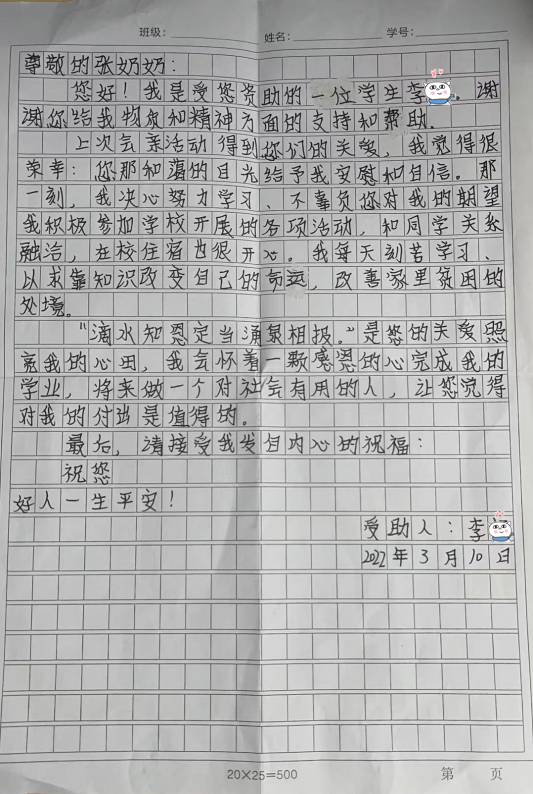 班级： 姓名： 学号：
尊敬的张奶奶：
您好！我是受您资助的一位学生李 。谢
谢您给我物质和精神方面的支持和帮助.
上次会亲活动得到您们的关爱，我觉得很
荣幸：您那和蔼的目光给予我安慰和自信。那
一刻，我决心努力学习、不辜负您对我的期望
我积极参加学校开展的各项活动，和同学关系
融洽，在校住宿也很开心。我每天刻苦学习、
以求靠知识改变自己的命运，改善家里贫困的
处境。
“滴水知恩定当涌泉相报。”是您的关爱照
亮我的心田，我会怀着一颗感恩的心完成我的
学业，将来做一个对社会有用的人，让您觉得
对我的付出是值得的。
最后，请接受我发自内心的祝福：
祝您
好人一生平安！
受助人：李
2022年3月10日
20×25=500 第 页